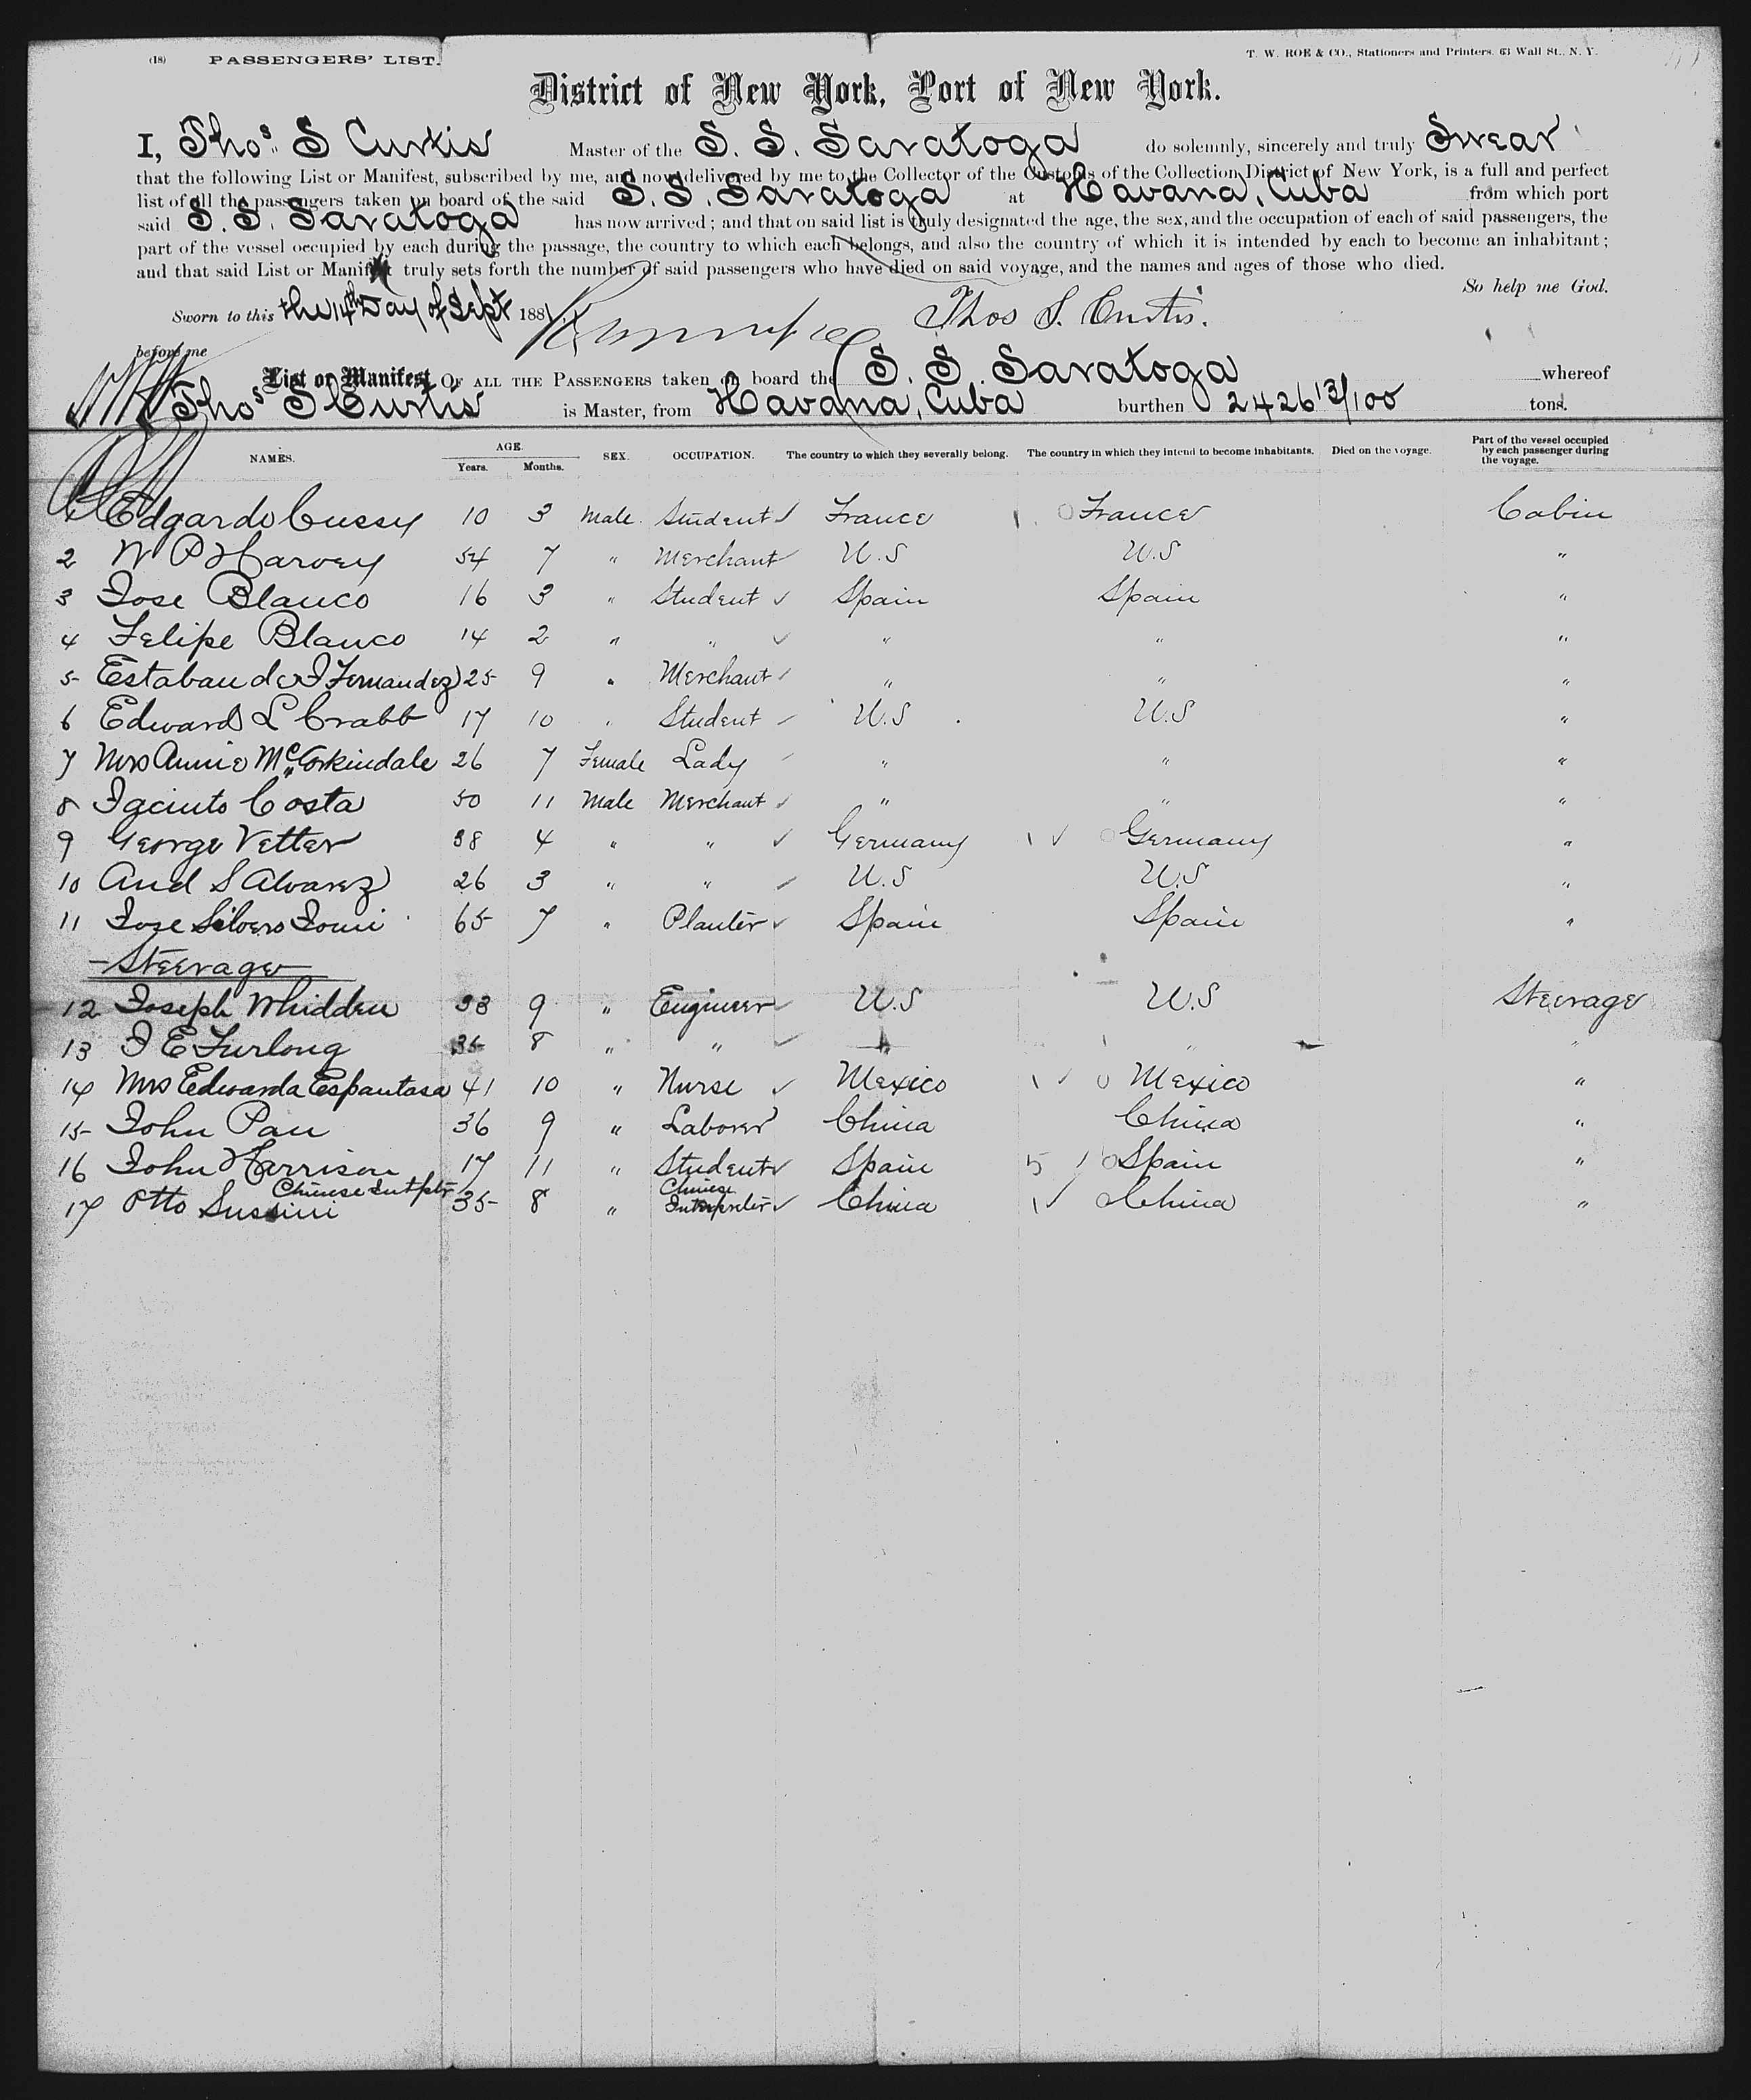 (18) PASSENGERS' LIST.
T. W. ROE & CO., Stationers and Printers. 63 Wall St., N. Y.
District of New York, Port of New York.
I, Thos. S Curtis Master of the S. S. Saratoga do solemnly, sincerely and truly Swear
that the following List or Manifest, subscribed by me, and now delivered by me to the Collector of the Customs of the Collection District of New York, is a full and perfect
list of all the passengers taken on board of the said S. S. Saratoga at Havana, Cuba from which port
said S. S. Saratoga has now arrived; and that on said list is truly designated the age, the sex, and the occupation of each of said passengers, the
part of the vessel occupied by each during the passage, the country to which each belongs, and also the country of which it is intended by each to become an inhabitant;
and that said List or Manifest truly sets forth the number of said passengers who have died on said voyage, and the names and ages of those who died.
So help me God.
Sworn to this the 14th Day of Sept 188 Thos S. Curtis.
before me
List or Manifest OF ALL THE PASSENGERS taken on board the S. S. Saratoga whereof
Thos S Curtis is Master, from Havana, Cuba burthen 2426 13/100 tons.
NAMES. AGE. Years. Months. SEX. OCCUPATION. The country to which they severally belong. The country in which they intend to become inhabitants. Died on the voyage. Part of the vessel occupied by each passenger during the voyage.
1 Edgardo Cussy 10 3 Male Student France France Cabin
2 W P Harvey 54 7 " Merchant U.S U.S "
3 Jose Blanco 16 3 " Student Spain Spain "
4 Felipe Blanco 14 2 " " " " "
5 Estaban de J Fernandez 25 9 " Merchant " " "
6 Edward L Crabb 17 10 " Student U.S U.S "
7 Mrs Annie McCorkindale 26 7 Female Lady " " "
8 Jacinto Costa 50 11 Male Merchant " " "
9 George Vetter 38 4 " " Germany Germany "
10 And S Alvarez 26 3 " " U.S U.S "
11 Jose Silvero Jomi 65 7 " Planter Spain Spain "
Steerage
12 Joseph Whidden 33 9 " Engineer U.S U.S Steerage
13 J E Furlong 35 8 " " " " "
14 Mrs Edwarda Espantasa 41 10 " Nurse Mexico Mexico "
15 John Pan 36 9 " Laborer China China "
16 John Harrison 17 11 " Student Spain 5 Spain "
17 Otto Sussini Chinese Intptr 35 8 " Chinese Interpreter China China "